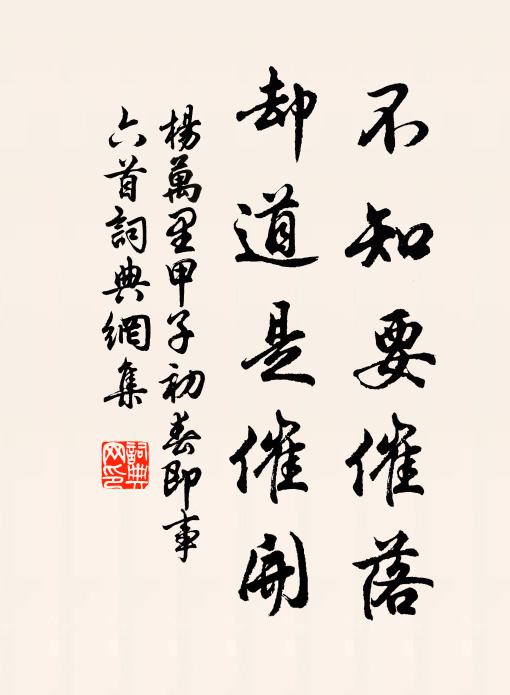 不知要催落
却道是催開
楊萬里甲子初春即事
六首詞典網集
詞典網印